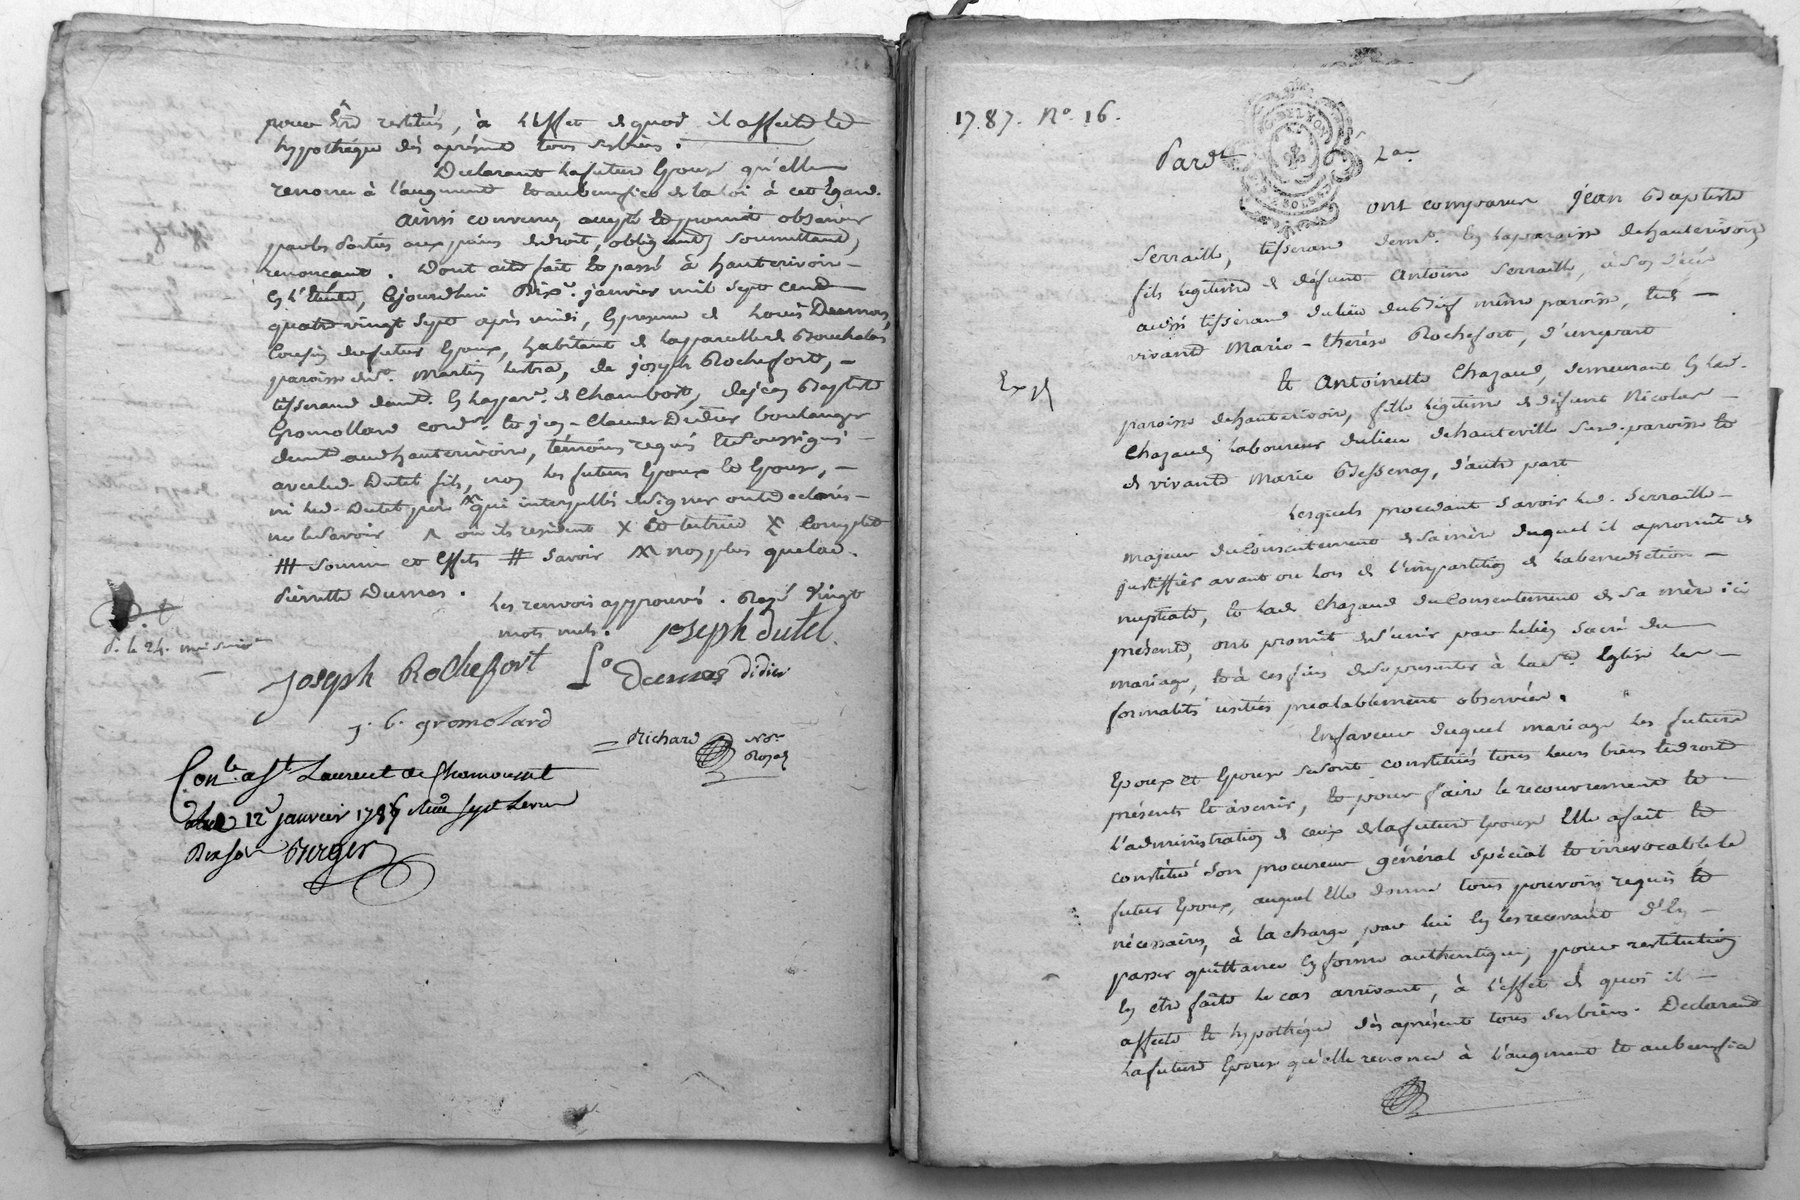 pour être restitués, à l'effet de quoi il affecte et
hypothéque dès aprésent tous ses biens.
Declarant la future Epouse qu'elle
renonce à l'augment et au benefice de la loi à cet Egard.
Ainsi convenu, accepté et promit observer
par les Parties aux peines de droit, obligeants, soumettants,
renonçants. Dont acte fait et passé à hauterivoir
En l'Etude, Ejourdhui Dixe. janvier mil sept cent
quatre vingt sept après midi, En presence de Louis Dumas,
Cousin du futur Epoux, habitant de la parcelle de Bouchalas
paroisse de st. Martin Lestra, de joseph Rochefort,
tisserand demt. En la parse. de Chambost, de jean Baptiste
Gromollard cordr. et jean-Claude Didier boulanger
demt. audt hauterivoire, témoins requis Et Soussignés
avec led. Dutel fils, non les futurs Epoux et Epouse,
ni led. Dutel père qui interpellés de signer ont declarés
ne le savoir ^ où ils resident X et lectrice X compté
### somme et Effets # savoir X non plus que lad.
Pierrette Dumas.
Les renvois approuvés. Rayé Vingt
mots nuls. joseph dutel
d. le 24. mai suivt
Joseph Rochefort Ls Dumas didier
j. b. gromolard
Richard Nore
Royal
Conlé. a St Laurent de Chamousset
Le 12 janvier 1787 Reçu sept Livres
Dix sols Berger
1787. No. 16.
G. DE LYON
Pardt
ont comparus jean Baptiste
Serraille, tisserand demt. En la paroisse de hauterivoire
fils legitime de défunt Antoine Serraille, à son décès
aussi tisserand du lieu du Bief même paroisse, Et de
vivante Marie-thérèse Rochefort, d'une part
Et Antoinette Chazaud, demeurant En lad.
paroisse de hauterivoir, fille légitime de défunt Nicolas
Chazaud Laboureur du lieu de hauteville susd. paroisse Et
de vivante Marie Bessenay, d'autre part
Exp
Lesquels procedant savoir led. Serraille
majeur du Consentement de sa mère duquel il a promit de
justiffier avant ou lors de l'impartition de la benediction
nuptiale, et lad. Chazaud du Consentement de sa mère ici
présente, ont promit de s'unir par le lien sacré du
mariage, et à ces fins de se presenter à la ste. Eglise les
formalités usitées prealablement observées.
En faveur duquel mariage les futurs
Epoux et Epouse se sont constitués tous leurs biens Et droits
présents Et àvenir, Et pour faire le recouvrement Et
l'administration de ceux de la future Epouse Elle a fait Et
constitué son procureur général spécial Et irrevocable le
futur Epoux, auquel Elle donne tous pouvoirs requis Et
nécessaires, à la charge par lui En les recevant d'En
passer quittance En forme authentique, pour restitution
En être faite le cas arrivant, à l'effet de quoi il
affecte Et hypothéque dès aprésent tous ses biens. Declarant
la future Epouse qu'elle renonce à l'augment Et au benefice